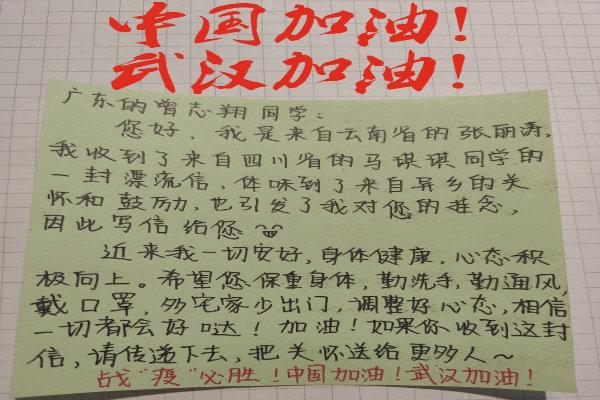 中国加油!
武汉加油!
广东的曾志翔同学:
您好，我是来自云南省的张丽涛,
我收到了来自四川省的马琪琪同学的
一封漂流信，体味到了来自异乡的关
怀和鼓励,也引发了我对您的挂念,
因此写信给您
近来我一切安好,身体健康,心态积
极向上。希望您保重身体,勤洗手,勤通风,
戴口罩,多宅家少出门,调整好心态,相信
一切都会好哒!加油!如果你收到这封
信,请传递下去,把关怀送给更多人~
战"疫"必胜!中国加油!武汉加油!